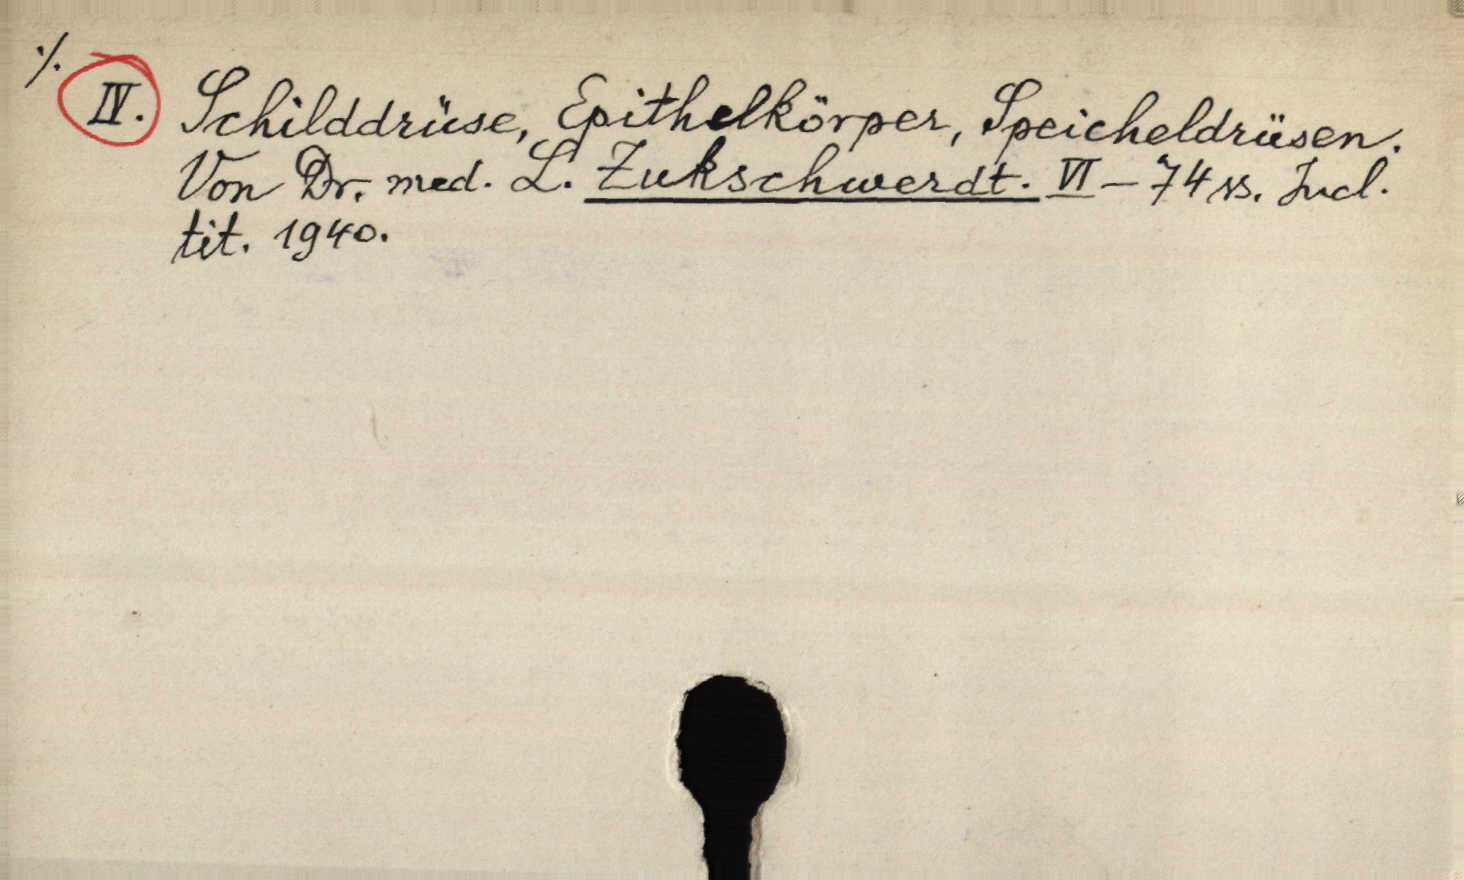 ·/.
IV. Schilddrüse, Epithelkörper, Speicheldrüsen.
Von Dr. med. L. Zukschwerdt. VI – 74 ss. Incl.
tit. 1940.